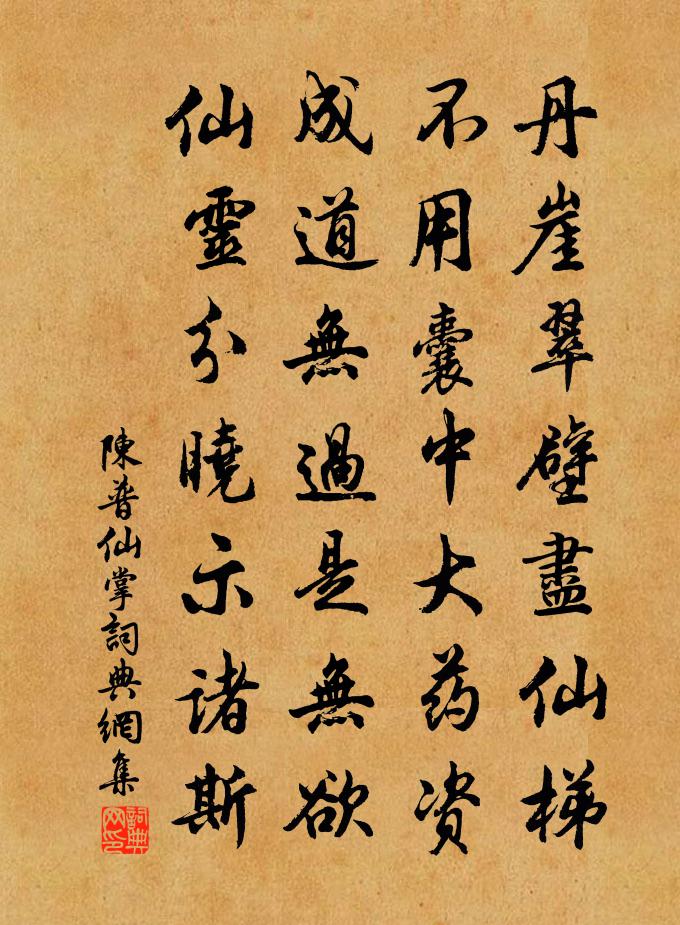 丹崖翠壁盡仙梯
不用囊中大药资
成道無過是無欲
仙靈分曉示诸斯
陳普仙掌詞典網集
詞典网印